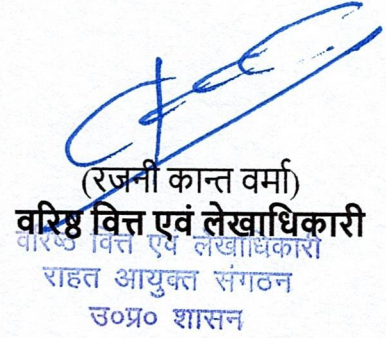 (रजनी कान्त वर्मा)
वरिष्ठ वित्त एवं लेखाधिकारी
वरिष्ठ वित्त एवं लेखाधिकारी
राहत आयुक्त संगठन
उ०प्र० शासन